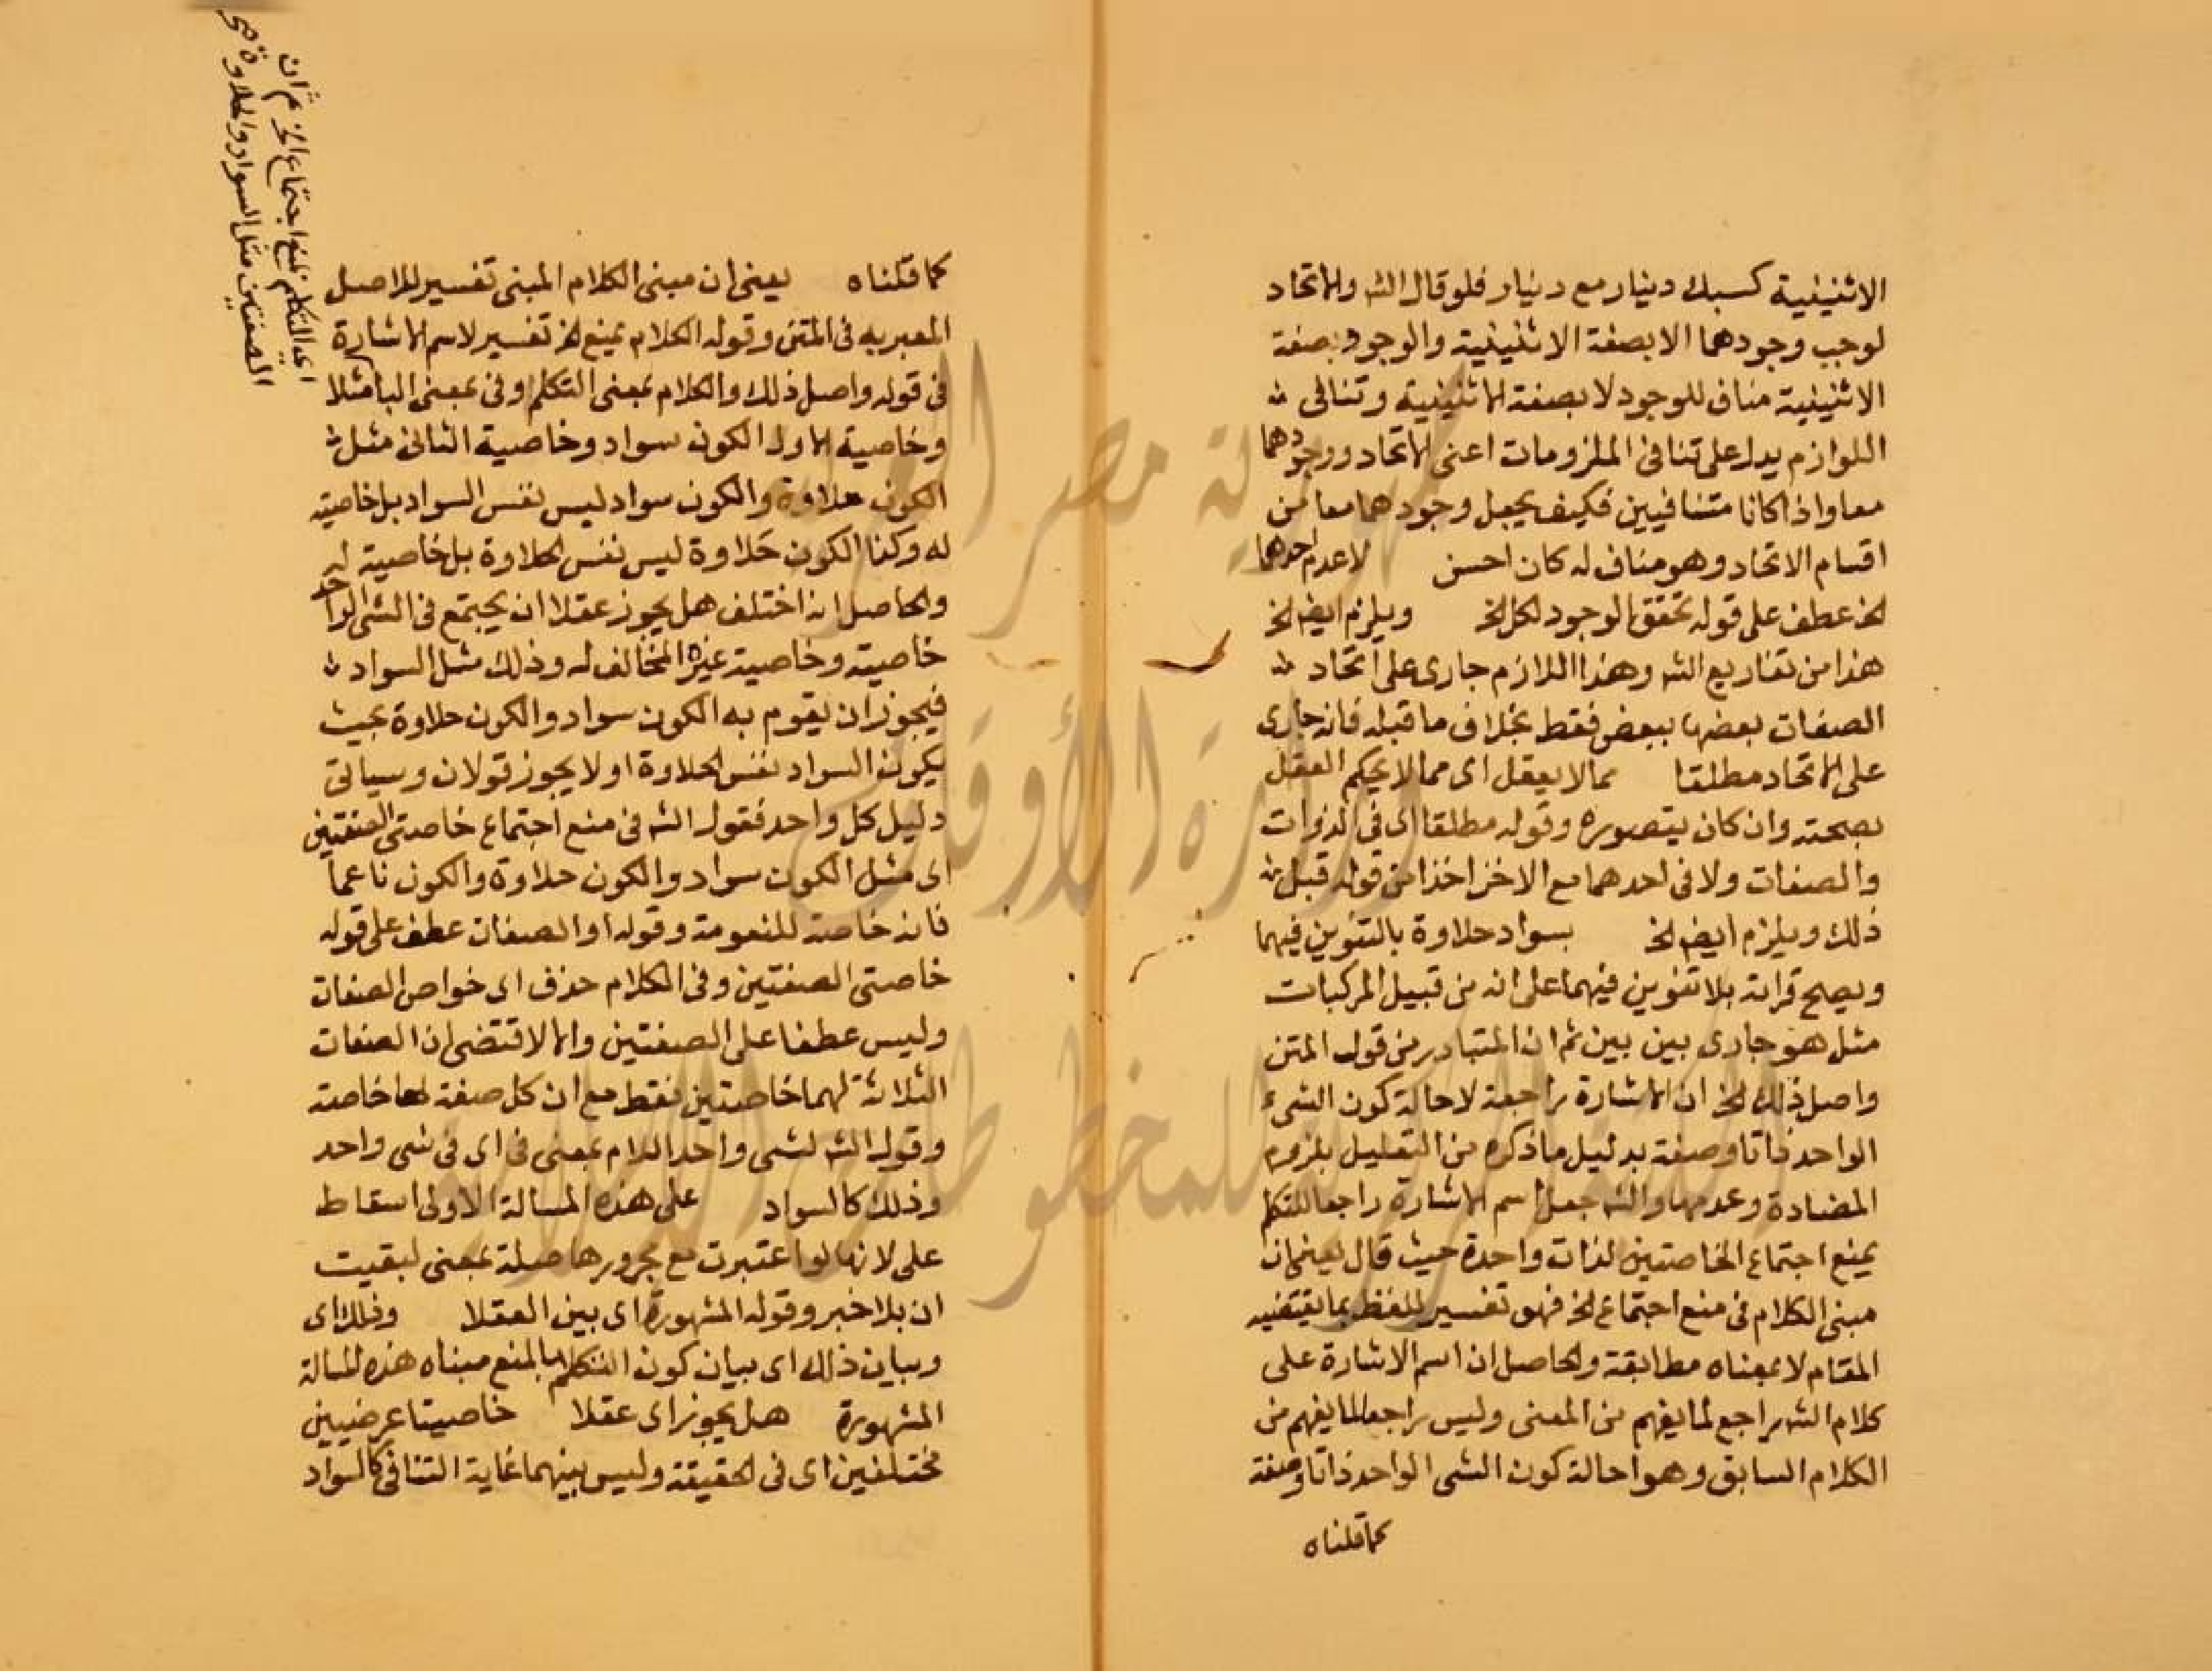 الاثنينية كسبك دينار مع دينار فلو قال الشه والاتحاد
لوجب وجودهما الا بصفة الاثنينية والوجود بصفة
الاثنينية مناف للوجود لا بصفة الاثنينية وتنافى
اللوازم يدل على تنافى الملزومات اعنى الاتحاد ووجودهما
معا واذا كانا متنافيين فكيف يجعل وجودهما معا من
اقسام الاتحاد وهو مناف له كان احسن لا عدم احدهما
الخ عطف على قوله تحقق الوجود لكل الخ ويلزم ايض الخ
هذا من تفاريع الشه وهذا اللازم جارى على اتحاد
الصفات بعضها ببعض فقط بخلاف ما قبله فانه جارى
على الاتحاد مطلقا مما لا يعقل اى مما لا يحكم العقل
بصحته وان كان يتصوره وقوله مطلقا اى فى الذوات
والصفات ولا فى احدهما مع الاخر اخذا من قوله قبل
ذلك ويلزم ايض الخ بسواد حلاوة بالتنوين فيهما
ويصح قراته بلا تنوين فيهما على انه من قبيل المركبات
مثل هو جارى بين بين ثم ان المتبادر من قول المتن
واصل ذلك الخ ان الاشارة راجعة لاحالة كون الشىء
الواحد ذاتا وصفة بدليل ما ذكره من التعليل بلزوم
المضادة وعدمها والشه جعل اسم الاشارة راجعا للتكلم
بمنع اجتماع الخاصتين لذات واحدة حيث قال يعنى ان
مبنى الكلام فى منع اجتماع الخ فهو تفسير للفظ بما يقتضيه
المقام لا بمعناه مطابقة والحاصل ان اسم الاشارة على
كلام الشه راجع لما يفهم من المعنى وليس راجعا لما يفهم من
الكلام السابق وهو احالة كون الشى الواحد ذاتا وصفة
كما قلناه
كما قلناه يعنى ان مبنى الكلام المبنى تفسير للاصل
المعبر به فى المتن وقوله الكلام بمنع الخ تفسير لاسم الاشارة
فى قوله واصل ذلك والكلام بمعنى التكلم وفى بمعنى البا مثلا
وخاصية الاول الكون سواد وخاصية الثانى مثل
الكون حلاوة والكون سواد ليس نفس السواد بل خاصية
له وكذا الكون حلاوة ليس نفس الحلاوة بل خاصية له
والحاصل انه اختلف هل يجوز عقلا ان يجتمع فى الشى الواحد
خاصيته وخاصية غيره المخالف له وذلك مثل السواد
فيجوز ان يقوم به الكون سواد والكون حلاوة بحيث
يكون السواد نفس الحلاوة او لا يجوز قولان وسياتى
دليل كل واحد فقول الشه فى منع اجتماع خاصتى الصفتين
اى مثل الكون سواد والكون حلاوة والكون ناعما
فانه خاصة للنعومة وقوله او الصفات عطف على قوله
خاصتى الصفتين وفى الكلام حذف اى خواص الصفات
وليس عطفا على الصفتين والا لاقتضى ان الصفات
الثلاثة لهما خاصتين فقط مع ان كل صفة لها خاصة
وقول الشه لشى واحد اللام بمعنى فى اى فى شى واحد
وذلك كالسواد على هذه المسالة الاولى اسقاط
على لانها لو اعتبرت مع مجرورها صلة بمعنى لبقيت
ان بلا خبر وقوله المشهورة اى بين العقلا وذلك اى
وبيان ذلك اى بيان كون التكلم بالمنع مبناه هذه المسالة
المشهورة هل يجوز اى عقلا خاصيتا عرضيين
مختلفين اى فى الحقيقة وليس بينهما غاية التنافى كالسواد
اى التكلم بمنع اجتماع الخ ثم ان
الصفتين مثل السواد والحلاوة صح